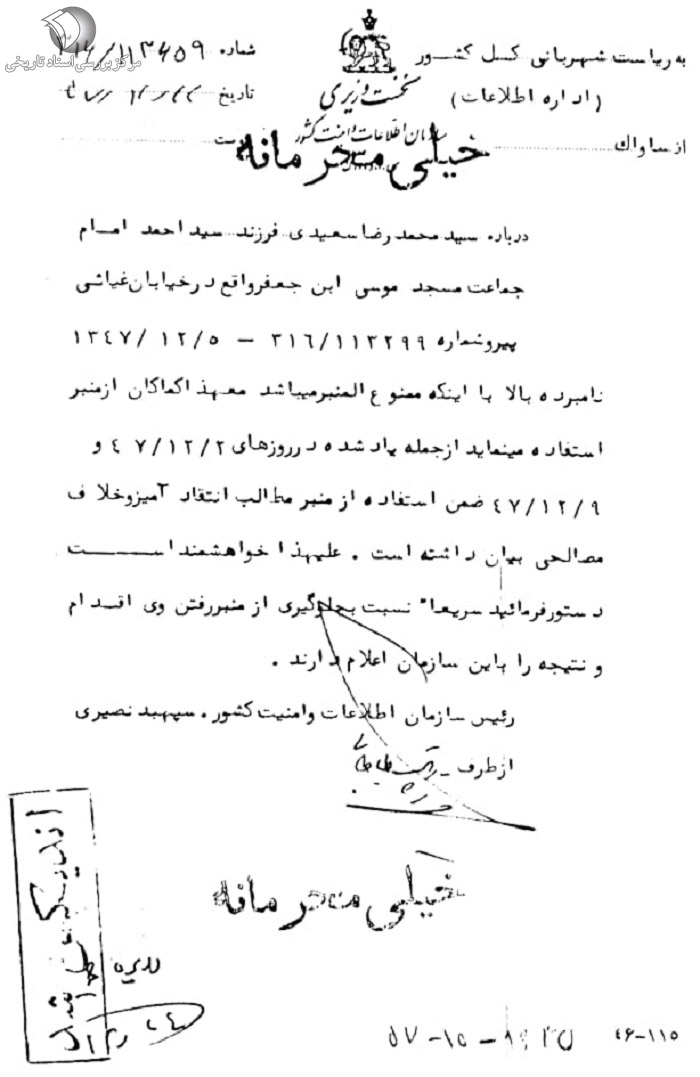 مرکز بررسی اسناد تاریخی
به ریاست شهربانی کل کشور
(اداره اطلاعات)
از ساواک
نخست وزیری
سازمان اطلاعات و امنیت کشور
شماره
تاریخ
خیلی محرمانه
درباره سید محمد رضا سعیدی فرزند سید احمد امام
جماعت مسجد موسی ابن جعفر واقع در خیابان غیاثی
پیرو شماره ۳۱۶/۱۱۳۲۹۹ - ۱۳۴۷/۱۲/۵
نامبرده بالا با اینکه ممنوع المنبر میباشد معهذا کماکان از منبر
استفاده مینماید از جمله یاد شده در روزهای ۴۷/۱۲/۲ و
۴۷/۱۲/۹ ضمن استفاده از منبر مطالب انتقاد آمیز و خلاف
مصالحی بیان داشته است . علیهذا خواهشمند است
دستور فرمائید سریعا" نسبت بجلوگیری از منبر رفتن وی اقدام
و نتیجه را باین سازمان اعلام دارند .
رئیس سازمان اطلاعات و امنیت کشور . سپهبد نصیری
از طرف -
خیلی محرمانه
اندیکس شد
۴۶-۱۱۵